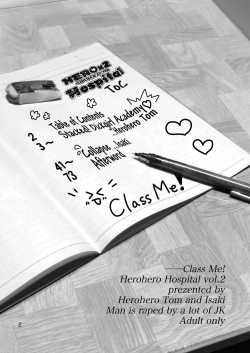 HERO×2
Hospital
ToC
Table of Contents
2
Stacked Dickgirl Academy
3~
Herohero Tom
Collapse Isaki
41~
Afterword
73
Class Me!
——Class Me!
Herohero Hospital vol.2
prezented by
Herohero Tom and Isaki
Man is raped by a lot of JK
Adult only
2